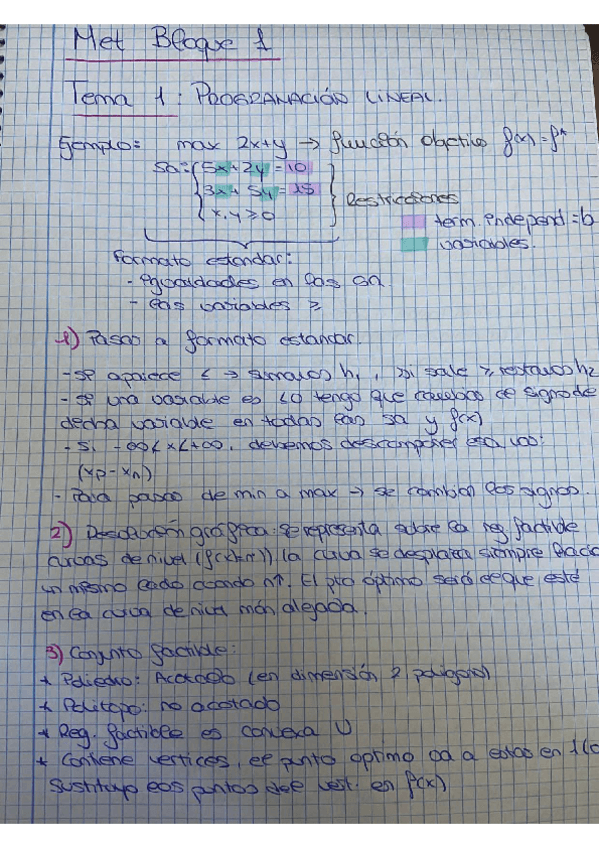 Met Bloque 1
Tema 1: PROGRAMACIÓN LINEAL.
Ejemplo: max 2x+y → función objetivo f(x)=f*
sa: 5x+2y=10
3x+5y=15 Restricciones
x,y≥0 term. independ=b
variables.
Formato estandar:
- igualdades en las sa
- las variables ≥
1) Pasos a formato estandar.
- si aparece ≤ → sumamos h1, si sale ≥ restamos h2
- si una variable es ≤0 tengo que cambiar de signo de
dicha variable en todas las sa y f(x)
- Si -∞<x<+∞, debemos descomponer esa
(xp-xn)
- Para pasar de min a max → se cambian los signos.
2) Resolución gráfica: se representa sobre la reg. factible
curvas de nivel la curva se desplaza siempre hacia
un mismo lado cuando n↑. El pto óptimo será el que esté
en la curva de nivel más alejada.
3) Conjunto factible:
* Poliedro: Acotado (en dimensión 2 poligono)
* Politopo: no acotado
* Reg. factible es convexa U
* Contiene vertices, el punto optimo va a estar en 1
sustituyo los puntos del vert. en f(x)